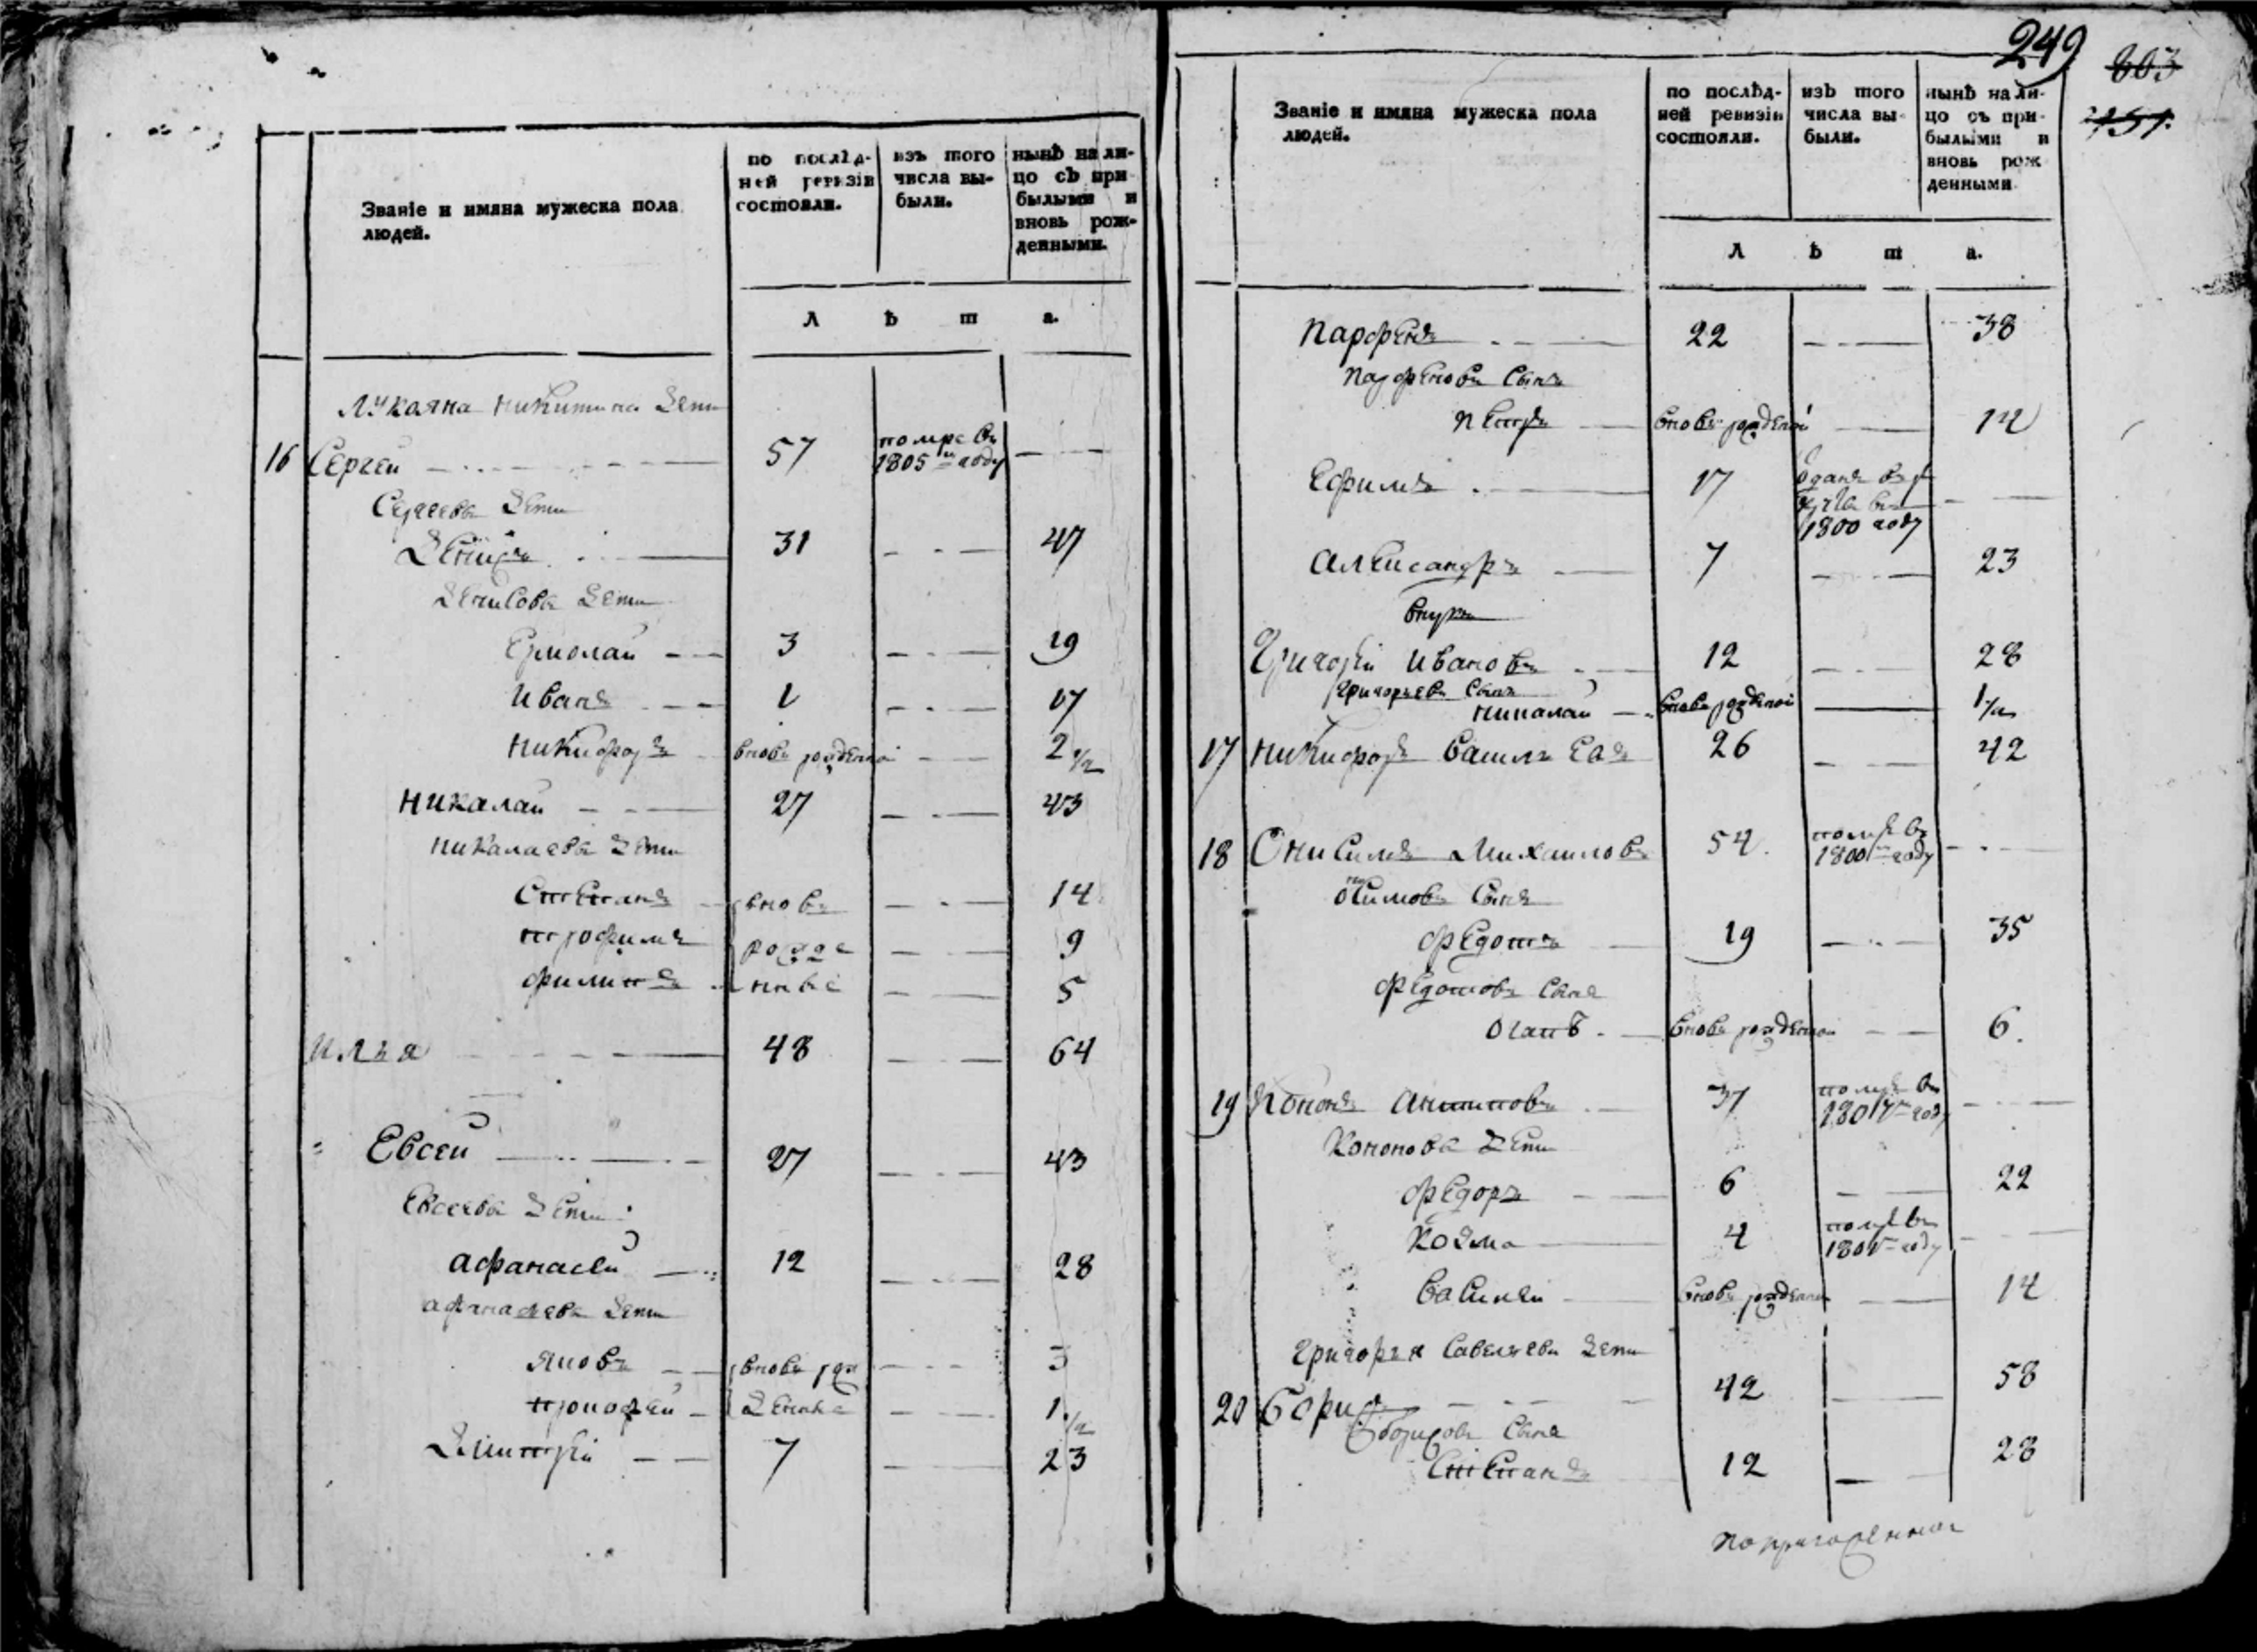 Званіе и имяна мужеска пола людей.
по послѣдней ревизіи состояли.
изъ того числа выбыли.
нынѣ на лицо съ прибылыми и вновь рожденными.
Л ѣ т а.
Лукояна Никитина дети
16 Сергей 57 помре въ 1805м году
Сергеева дети
Денисъ 31 47
Денисова дети
Ермолай 3 19
Иванъ 1 17
Никифоръ вновь рожденой 2 1/2
Николай 27 43
Николаева дети
Степанъ вновь 14
Трофимъ рожде 9
Филипъ нные 5
Илья 48 64
Евсей 27 43
Евсеева дети
Афанасей 12 28
Афанасьева дети
Яковъ вновь рож 3
Прокофей денные 1/2
Дмитрей 7 23
249
803
Званіе и имяна мужеска пола людей.
по послѣдней ревизіи состояли.
изъ того числа выбыли.
нынѣ на лицо съ прибылыми и вновь рожденными.
Л ѣ т а.
Парфенъ 22 38
Парфеновъ сынъ
Петръ вновь рожденой 14
Ефимъ 17 одданъ въ рекруты въ 1800 году
Александръ 7 23
внукъ
Григорей Ивановъ 12 28
Григорьевъ сынъ
Николай вновь рожденой 1/2
17 Никифоръ Васильевъ 26 42
18 Онисимъ Михаиловъ 54 помре въ 1800м году
Онисимовъ сынъ
Федотъ 19 35
Федотовъ сынъ
Осипъ вновь рожденой 6.
19 Кононъ Антиповъ 37 помре въ году
Кононова дети
Федоръ 6 22
Козма 4 помре въ году
Василей вновь рожденой 14
Григорья Савельева дети
20 Борисъ 42 58
Борисовъ сынъ
Степанъ 12 28